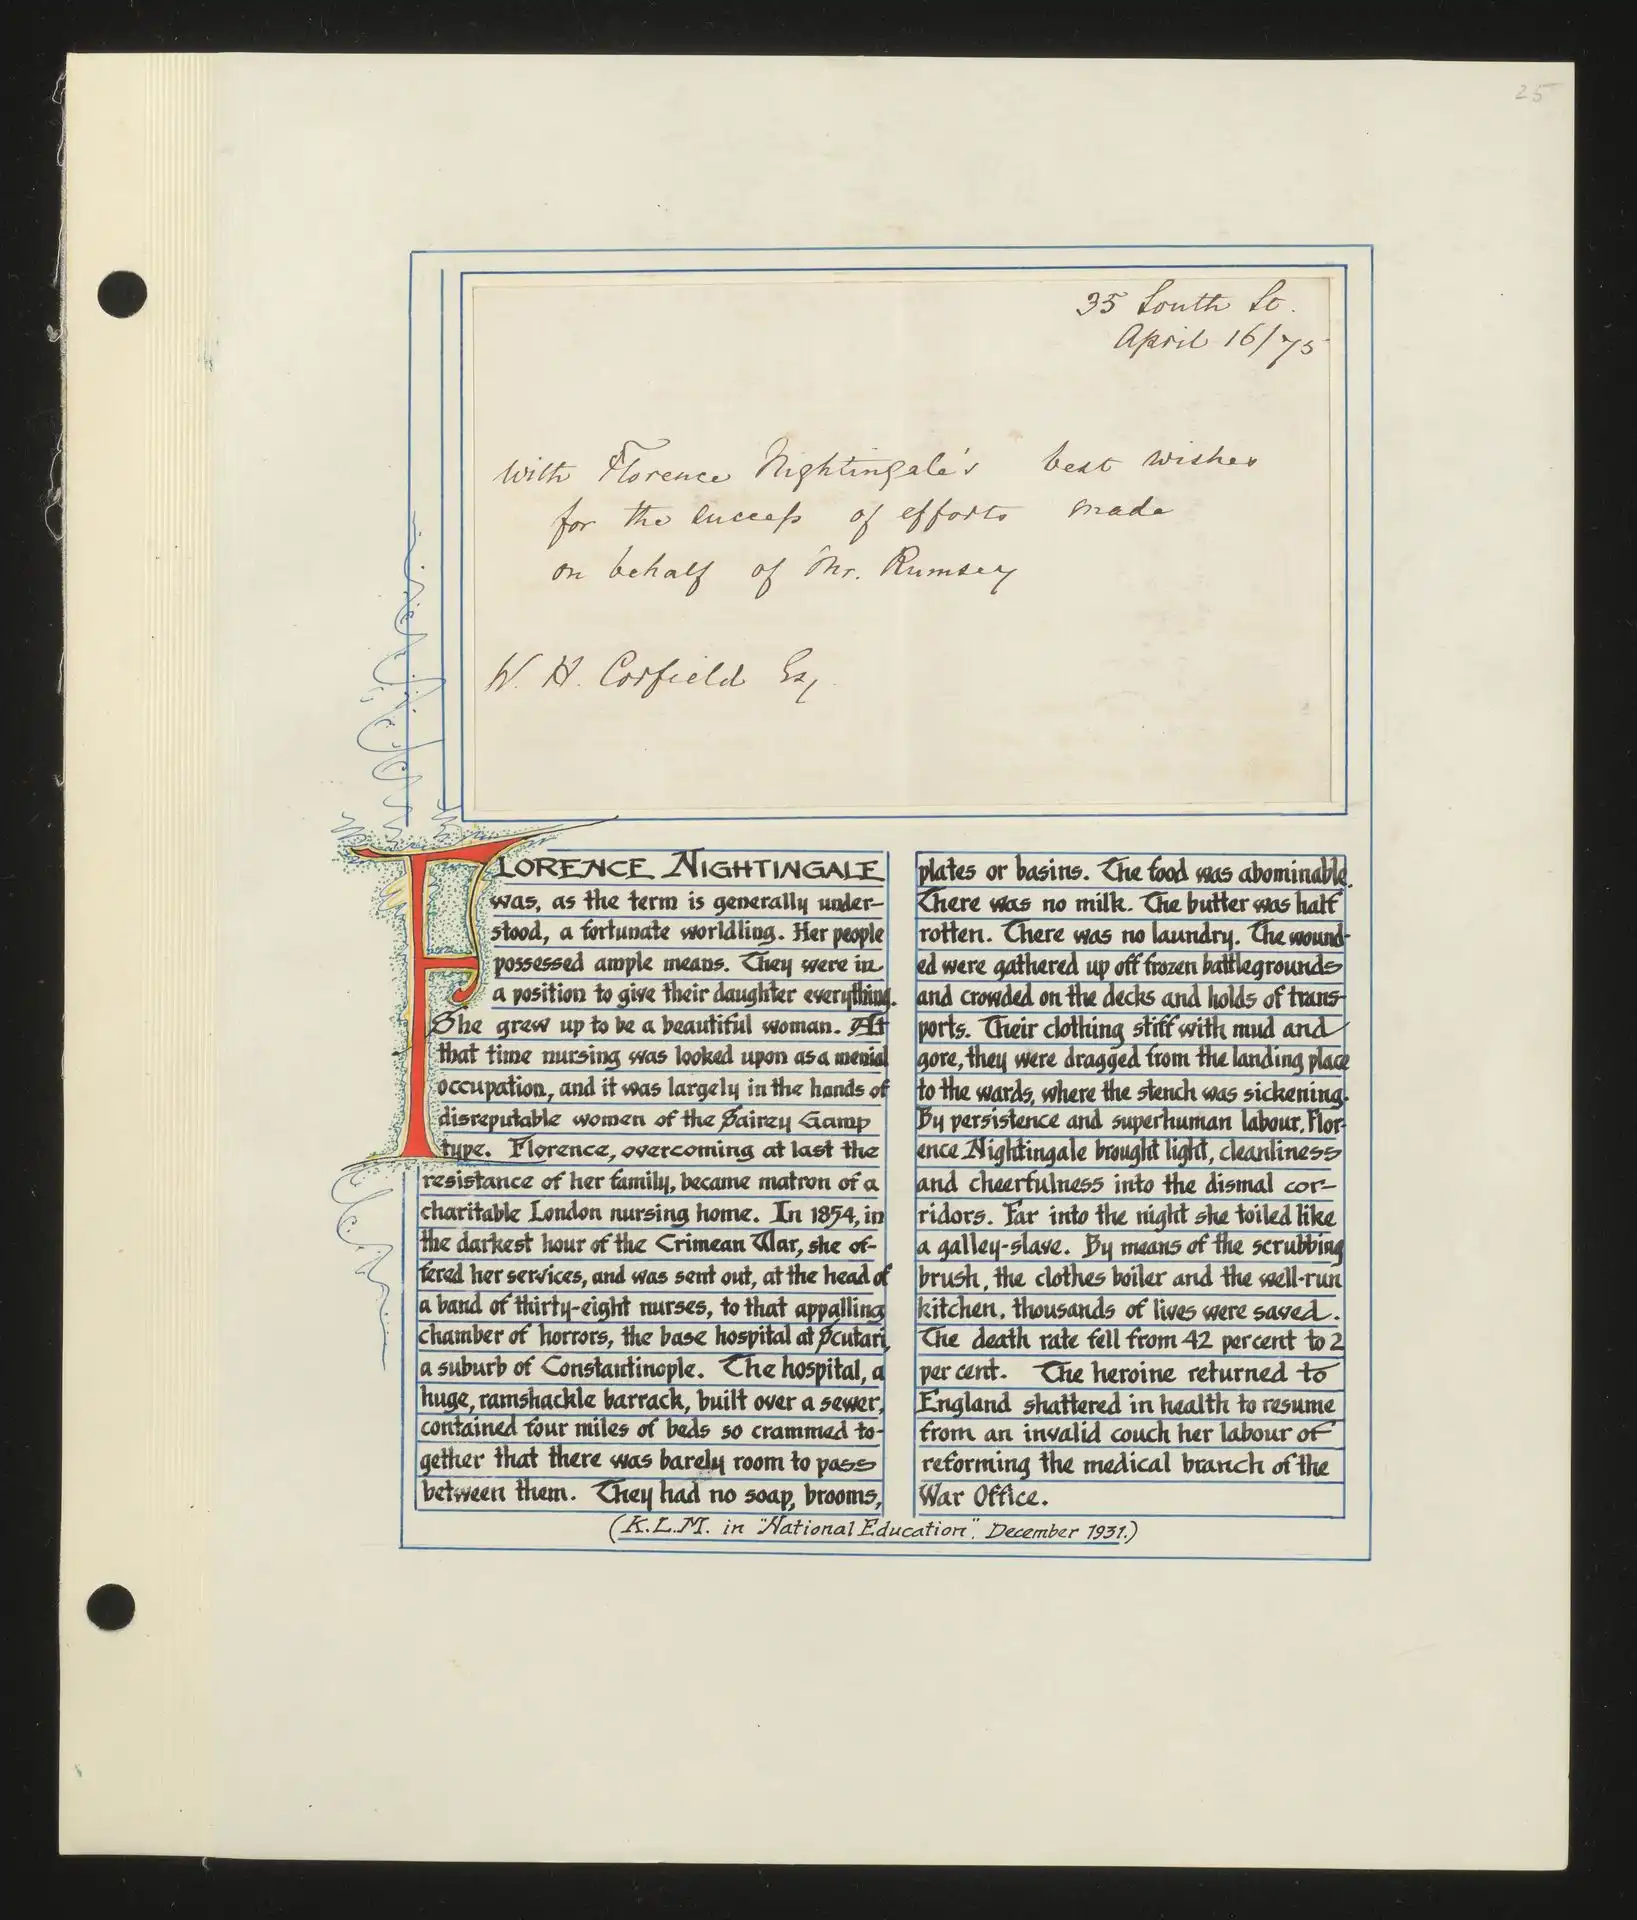 25
35 South St.
April 16/75
With Florence Nightingale's best wishes
for the success of efforts made
on behalf of Mr. Rumsey
W. H. Corfield Esq.
FLORENCE NIGHTINGALE
was, as the term is generally under-
stood, a fortunate worldling. Her people
possessed ample means. They were in
a position to give their daughter everything.
She grew up to be a beautiful woman. At
that time nursing was looked upon as a menial
occupation, and it was largely in the hands of
disreputable women of the Sairey Gamp
type. Florence, overcoming at last the
resistance of her family, became matron of a
charitable London nursing home. In 1854, in
the darkest hour of the Crimean War, she of-
fered her services, and was sent out, at the head of
a band of thirty-eight nurses, to that appalling
chamber of horrors, the base hospital at Scutari,
a suburb of Constantinople. The hospital, a
huge, ramshackle barrack, built over a sewer,
contained four miles of beds so crammed to-
gether that there was barely room to pass
between them. They had no soap, brooms,
plates or basins. The food was abominable.
There was no milk. The butter was half
rotten. There was no laundry. The wound-
ed were gathered up off frozen battlegrounds
and crowded on the decks and holds of trans-
ports. Their clothing stiff with mud and
gore, they were dragged from the landing place
to the wards, where the stench was sickening.
By persistence and superhuman labour, Flor-
ence Nightingale brought light, cleanliness
and cheerfulness into the dismal cor-
ridors. Far into the night she toiled like
a galley-slave. By means of the scrubbing
brush, the clothes boiler and the well-run
kitchen, thousands of lives were saved.
The death rate fell from 42 per cent to 2
per cent. The heroine returned to
England shattered in health to resume
from an invalid couch her labour of
reforming the medical branch of the
War Office.
(K.L.M. in "National Education". December 1931.)